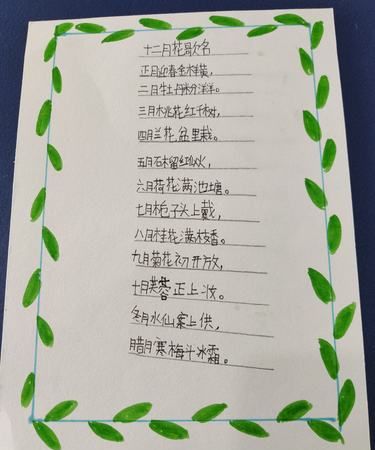 十二月花歌名
正月迎春金样黄,
二月牡丹粉洋洋。
三月桃花红千树,
四月兰花盆里栽。
五月石榴红似火,
六月荷花满池塘。
七月栀子头上戴,
八月桂花满枝香。
九月菊花初开放,
十月芙蓉正上妆。
冬月水仙案上供,
腊月寒梅斗冰霜。